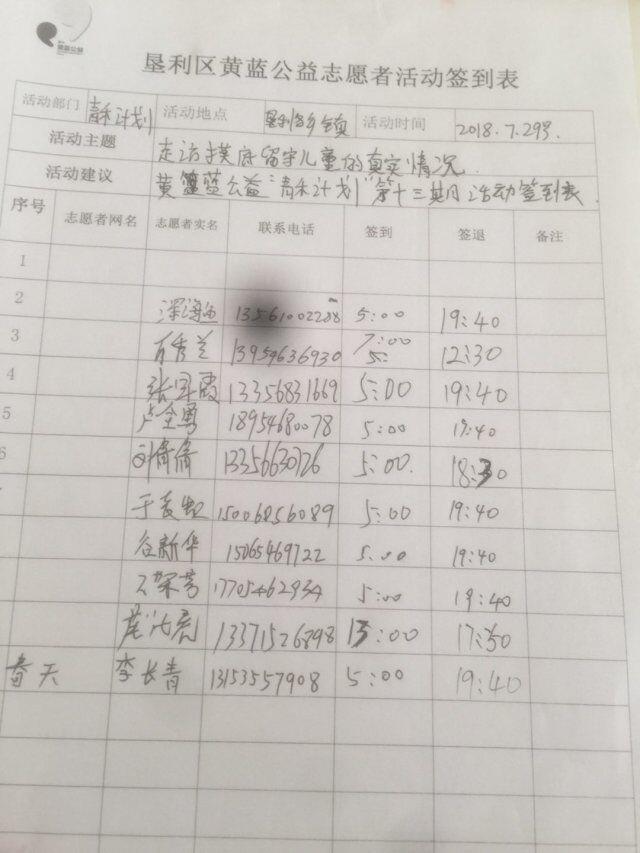 垦利区黄蓝公益志愿者活动签到表
活动部门 青禾计划 活动地点 垦利各乡镇 活动时间 2018.7.29号.
活动主题 走访摸底留守儿童的真实情况.
活动建议 黄蓝公益"青禾计划"第十三期活动签到表.
序号 志愿者网名 志愿者实名 联系电话 签到 签退 备注
1
2 13561002288 5:00 19:40
3 13954636930 7:00 12:30
4 张军霞 13356831669 5:00 19:40
5 卢全勇 18954680078 5:00 19:40
6 刘倩倩 13356630726 5:00. 18:30
15006856089 5:00 19:40
谷新华 15065469722 5:00 19:40
17705462934 5:00 19:40
13371526898 13:00 17:50
春天 李长青 13153557908 5:00 19:40